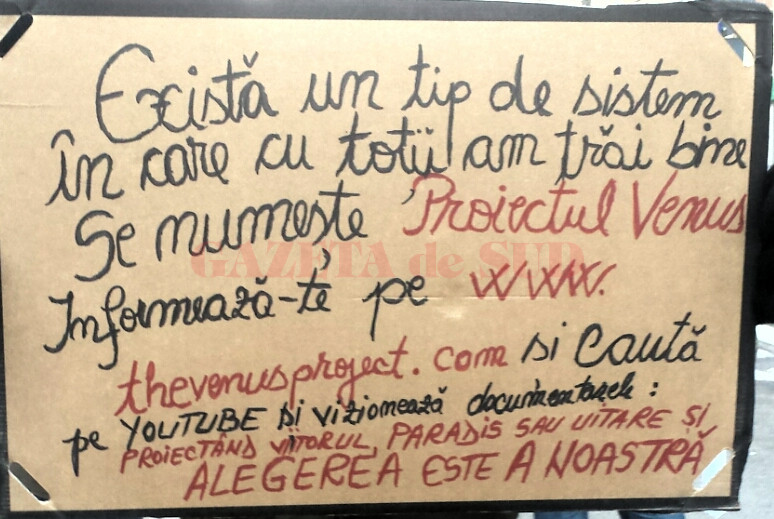 Există un tip de sistem
în care cu totii am trăi bine
Se numeste Proiectul Venus
GAZETA de SUD
Informează-te pe www.
thevenusproject.com si caută
pe YOUTUBE si vizionează documentarele:
PROIECTÂND VIITORUL, PARADIS SAU UITARE ȘI
ALEGEREA ESTE A NOASTRĂ